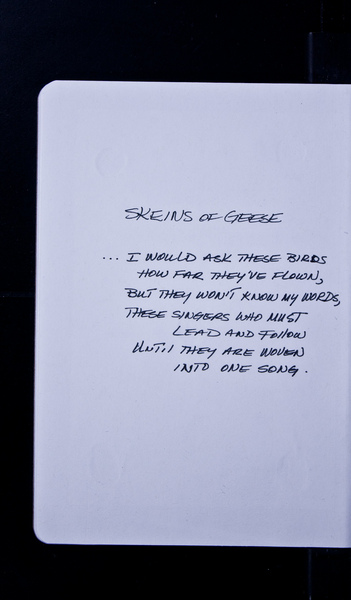 SKEINS OF GEESE
... I WOULD ASK THESE BIRDS
HOW FAR THEY'VE FLOWN,
BUT THEY WON'T KNOW MY WORDS,
THESE SINGERS WHO MUST
LEAD AND FOLLOW
UNTIL THEY ARE WOVEN
INTO ONE SONG.